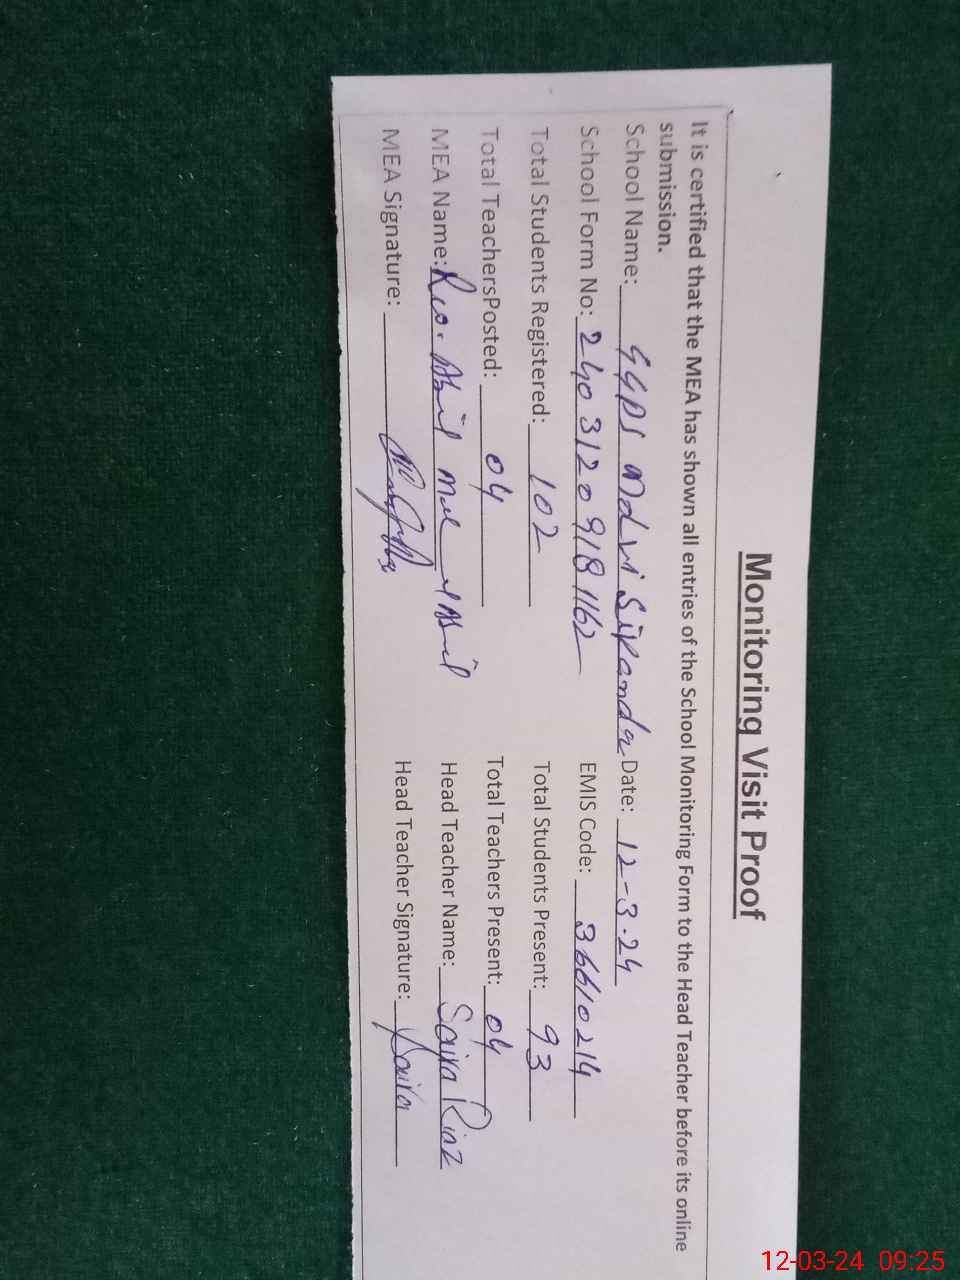 Monitoring Visit Proof
It is certified that the MEA has shown all entries of the School Monitoring Form to the Head Teacher before its online
submission.
School Name: GGPS Sikandar Date: 12-3.24
School Form No: 24031209181162 EMIS Code: 36610214
Total Students Registered: 102 Total Students Present: 93
Total TeachersPosted: 04 Total Teachers Present: 04
MEA Name: Head Teacher Name: Saira Riaz
MEA Signature: Head Teacher Signature: Saira
12-03-24 09:25